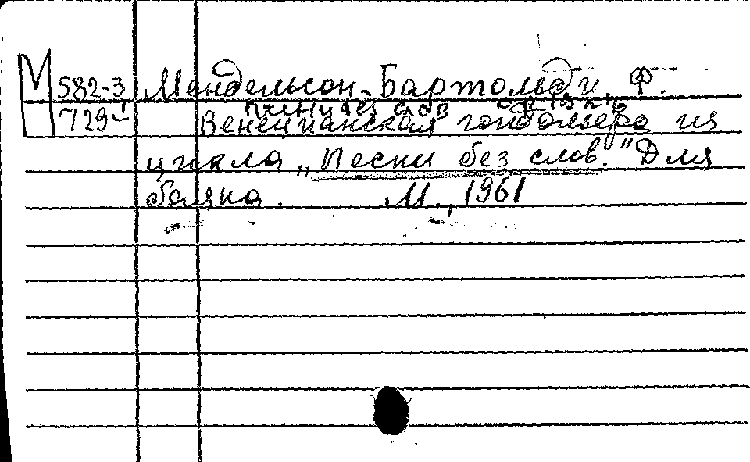 М 582-3 Мендельсон-Бартольди, Ф.
729 Венецианская гондольера из
цикла „Песни без слов." Для
баяна. М., 1961